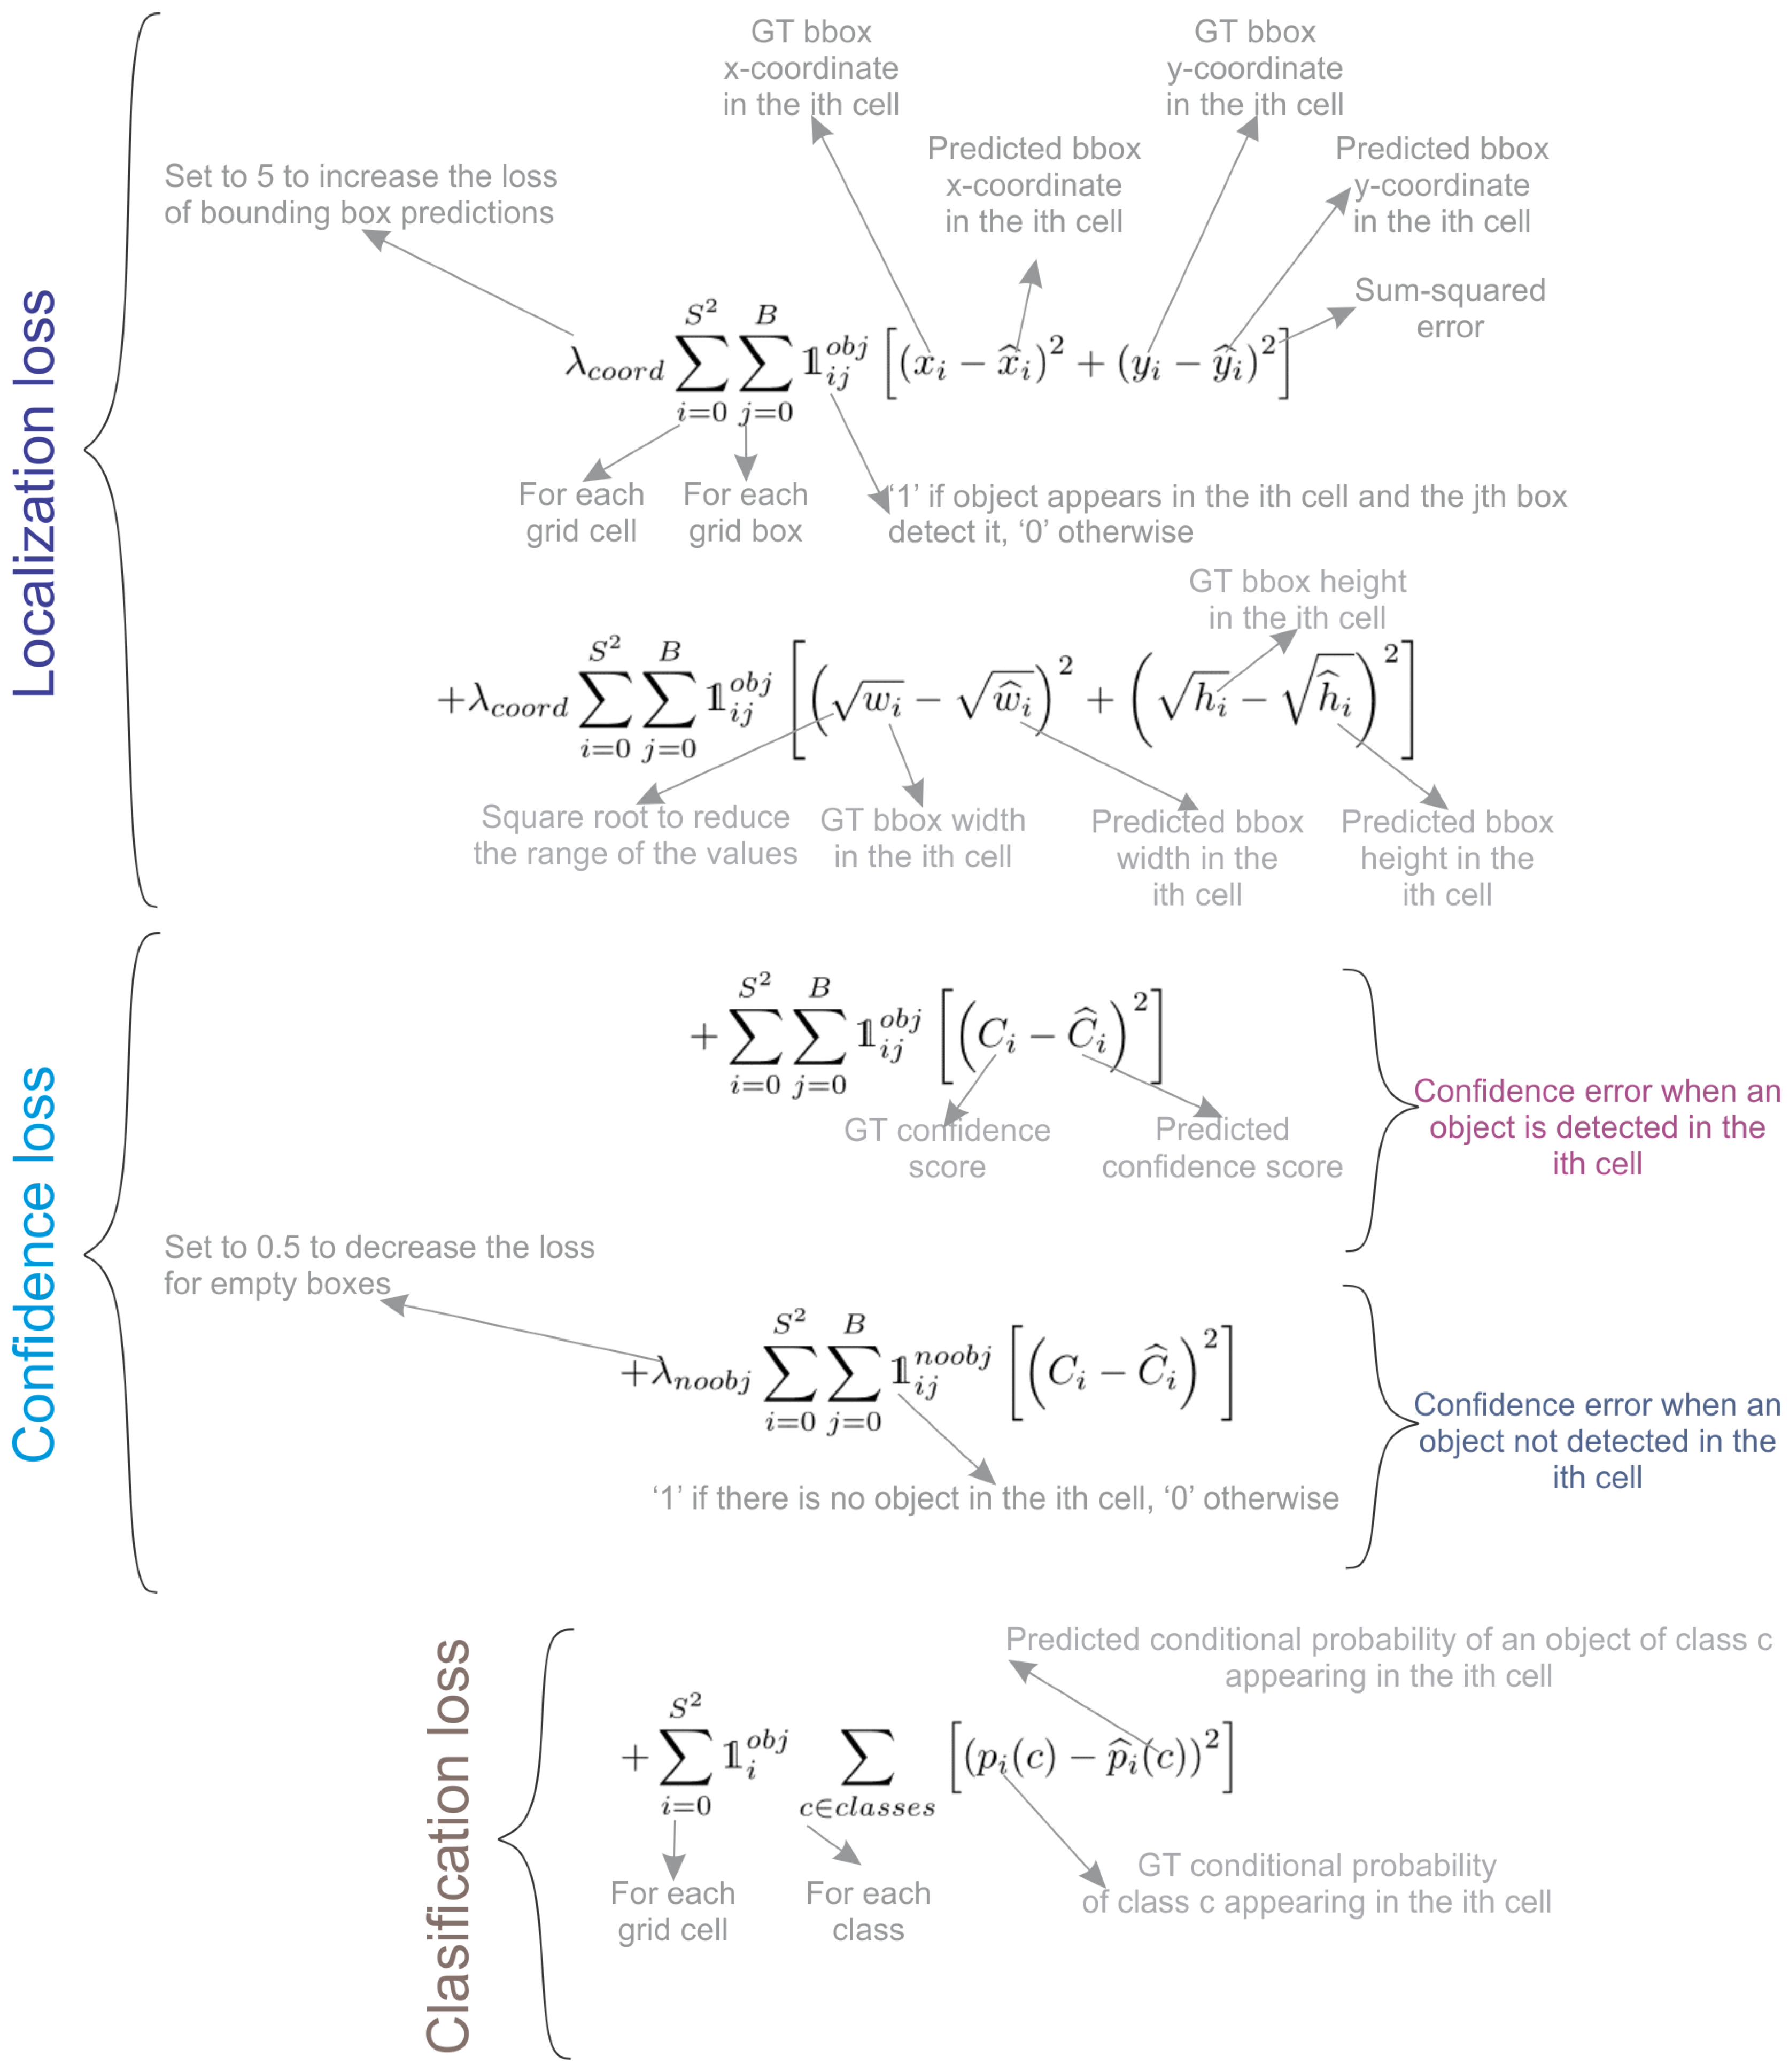 Localization loss
GT bbox
x-coordinate
in the ith cell
GT bbox
y-coordinate
in the ith cell
Predicted bbox
x-coordinate
in the ith cell
Predicted bbox
y-coordinate
in the ith cell
Set to 5 to increase the loss
of bounding box predictions
Sum-squared
error
λ_{coord} \sum_{i=0}^{S^2} \sum_{j=0}^{B} 𝟙_{ij}^{obj} [(x_i − \hat{x}_i)^2 + (y_i − \hat{y}_i)^2]
For each
grid cell
For each
grid box
‘1’ if object appears in the ith cell and the jth box
detect it, ‘0’ otherwise
GT bbox height
in the ith cell
+λ_{coord} \sum_{i=0}^{S^2} \sum_{j=0}^{B} 𝟙_{ij}^{obj} [(\sqrt{w_i} − \sqrt{\hat{w}_i})^2 + (\sqrt{h_i} − \sqrt{\hat{h}_i})^2]
Square root to reduce
the range of the values
GT bbox width
in the ith cell
Predicted bbox
width in the
ith cell
Predicted bbox
height in the
ith cell
Confidence loss
+ \sum_{i=0}^{S^2} \sum_{j=0}^{B} 𝟙_{ij}^{obj} [(C_i − \hat{C}_i)^2]
GT confidence
score
Predicted
confidence score
Confidence error when an
object is detected in the
ith cell
Set to 0.5 to decrease the loss
for empty boxes
+λ_{noobj} \sum_{i=0}^{S^2} \sum_{j=0}^{B} 𝟙_{ij}^{noobj} [(C_i − \hat{C}_i)^2]
‘1’ if there is no object in the ith cell, ‘0’ otherwise
Confidence error when an
object not detected in the
ith cell
Clasification loss
Predicted conditional probability of an object of class c
appearing in the ith cell
+ \sum_{i=0}^{S^2} 𝟙_i^{obj} \sum_{c∈classes} [(p_i(c) − \hat{p}_i(c))^2]
For each
grid cell
For each
class
GT conditional probability
of class c appearing in the ith cell